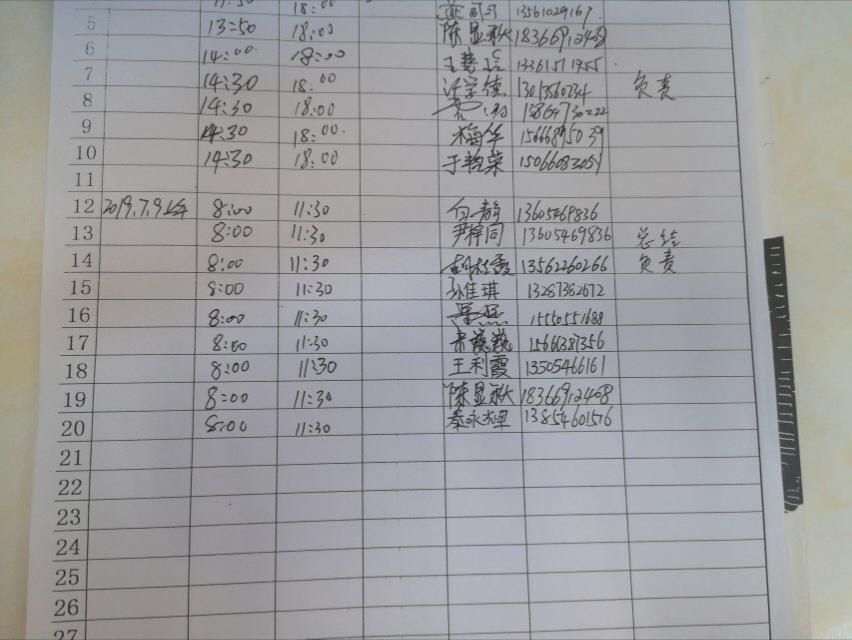 18:00 13561029167
5 13:50 18:00 陈显秋 18366912408
6 14:00 18:00 王慧 13361511955
7 14:30 18:00 13013560234 负责
8 14:30 18:00
9 14:30 18:00 梅华 15666895039
10 14:30 18:00 于艳荣 15066083051
11
12 2019.7.9上午 8:00 11:30 白静 13605469836
13 8:00 11:30 尹梓同 13605469836 总结
14 8:00 11:30 胡秋霞 13562260266 负责
15 8:00 11:30 孙佳琪 13287382672
16 8:00 11:30 15550551688
17 8:00 11:30 1566381356
18 8:00 11:30 王利霞 13505466161
19 8:00 11:30 陈显秋 18366912408
20 8:00 11:30 秦永翠 13854601576
21
22
23
24
25
26
27